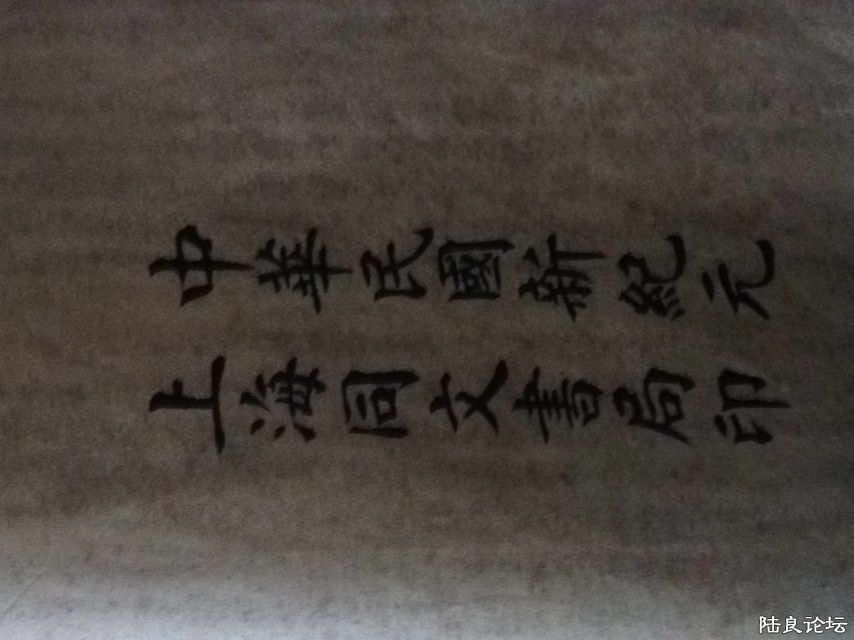 中華民國新紀元
上海同文書局印
陆良论坛